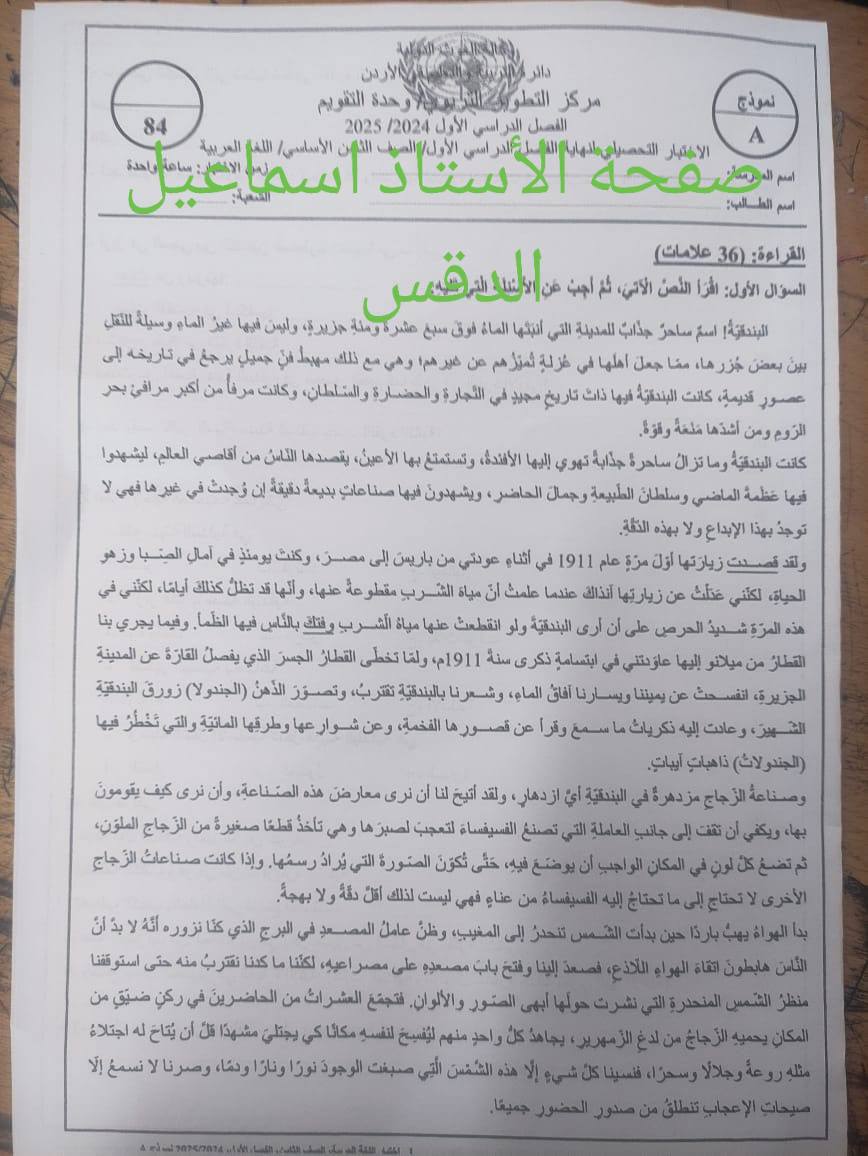 وكالة الغوث الدولية
دائرة التربية والتعليم/ الأردن
مركز التطوير التربوي/ وحدة التقويم
الفصل الدراسي الأول 2024/ 2025
نموذج
A
84
الاختبار التحصيلي لنهاية الفصل الدراسي الأول/ الصف الثامن الأساسي/ اللغة العربية
اسم المدرسة: زمن الاختبار: ساعة واحدة
اسم الطالب: الشعبة:
صفحة الأستاذ اسماعيل
الدقس
القراءة: (36 علامات)
السؤال الأول: اقْرَأ النَّصَّ الْآتِيَ، ثُمَّ أَجِبْ عَنِ الأَسْئِلَةِ الَّتِي تَلِيهِ:
البندقيّةُ! اسمٌ ساحرٌ جذّابٌ للمدينةِ التي أنبتَها الماءُ فوقَ سبعَ عشرةَ ومئةِ جزيرةٍ، وليسَ فيها غيرُ الماءِ وسيلةً للنّقلِ
بينَ بعضِ جُزرِها، ممّا جعلَ أهلَها في عُزلةٍ تُميّزُهم عن غيرِهم؛ وهي مع ذلك مهبطُ فنٍّ جميلٍ يرجعُ في تاريخِه إلى
عصورٍ قديمةٍ، كانت البندقيّةُ فيها ذاتَ تاريخٍ مجيدٍ في التّجارةِ والحضارةِ والسّلطانِ، وكانت مرفأً من أكبرِ مرافئِ بحرِ
الرّومِ ومن أشدّها مَنَعَةً وقوّةً.
كانت البندقيّةُ وما تزالُ ساحرةً جذّابةً تهوي إليها الأفئدةُ، وتستمتعُ بها الأعينُ، يقصدها النّاسُ من أقاصي العالمِ، ليشهدوا
فيها عَظَمةَ الماضي وسلطانَ الطّبيعةِ وجمالَ الحاضرِ، ويشهدونَ فيها صناعاتٍ بديعةً دقيقةً إن وُجدتْ في غيرِها فهي لا
توجدُ بهذا الإبداعِ ولا بهذه الدّقّةِ.
ولقد قصدت زيارتَها أوّلَ مرّةٍ عام 1911 في أثناءِ عودتي من باريسَ إلى مصرَ، وكنتُ يومئذٍ في آمالِ الصِّبا وزهو
الحياةِ، لكنّني عَدَلْتُ عن زيارتِها آنذاكَ عندما علمتُ أنّ مياهَ الشّربِ مقطوعةٌ عنها، وأنّها قد تظلُّ كذلكَ أيامًا، لكنّني في
هذه المرّةِ شديدُ الحرصِ على أن أرى البندقيّةَ ولو انقطعتْ عنها مياهُ الشّربِ وفتكَ بالنّاسِ فيها الظّمأ. وفيما يجري بنا
القطارُ من ميلانو إليها عاوَدتني في ابتسامةٍ ذكرى سنةِ 1911م، ولمّا تخطّى القطارُ الجسرَ الذي يفصلُ القارّةَ عن المدينةِ
الجزيرةِ، انفسحتْ عن يميننا ويسارنا آفاقُ الماءِ، وشعرنا بالبندقيّةِ تقتربُ، وتصوّرَ الذّهنُ (الجندولا) زورقَ البندقيّةِ
الشّهيرَ، وعادت إليه ذكرياتُ ما سمعَ وقرأ عن قصورِها الفخمةِ، وعن شوارعِها وطرقِها المائيّةِ والتي تَخْطُرُ فيها
(الجندولاتُ) ذاهباتٍ آيباتٍ.
وصناعةُ الزّجاجِ مزدهرةٌ في البندقيّةِ أيَّ ازدهارٍ، ولقد أُتيحَ لنا أن نرى معارضَ هذه الصّناعةِ، وأن نرى كيف يقومونَ
بها، ويكفي أن تقفَ إلى جانبِ العاملةِ التي تصنعُ الفسيفساءَ لتعجبَ لصبرِها وهي تأخذُ قطعًا صغيرةً من الزّجاجِ الملوّنِ،
ثم تضعُ كلَّ لونٍ في المكانِ الواجبِ أن يوضَعَ فيهِ، حَتّى تُكوّنَ الصّورةَ التي يُرادُ رسمُها. وإذا كانت صناعاتُ الزّجاجِ
الأخرى لا تحتاجُ إلى ما تحتاجُ إليه الفسيفساءُ من عناءٍ فهي ليست لذلك أقلَّ دقّةً ولا بهجةً.
بدأ الهواءُ يهبُّ باردًا حين بدأتِ الشّمس تنحدرُ إلى المغيبِ، وظنَّ عاملُ المصعدِ في البرجِ الذي كنّا نزوره أنَّهُ لا بدَّ أنَّ
النّاسَ هابطونَ اتقاءَ الهواءِ اللّاذعِ، فصعدَ إلينا وفتحَ بابَ مصعدِهِ على مصراعيهِ، لكنّنا ما كدنا نقتربُ منه حتى استوقفنا
منظرُ الشّمسِ المنحدرةِ التي نشرت حولَها أبهى الصّورِ والألوانِ. فتجمّعَ العشراتُ من الحاضرينَ في ركنٍ ضيّقٍ من
المكانِ يحميهِ الزّجاجُ من لدغِ الزّمهريرِ، يجاهدُ كلُّ واحدٍ منهم ليُفسِحَ لنفسهِ مكانًا كي يجتليَ مشهدًا قلَّ أن يُتاحَ له اجتلاءُ
مثلهِ روعةً وجلالًا وسحرًا، فنسينا كلَّ شيءٍ إلّا هذه الشّمْسَ الَّتِي صبغت الوجودَ نورًا ونارًا ودمًا، وصرنا لا نسمعُ إلّا
صيحاتِ الإعجابِ تنطلقُ من صدورِ الحضورِ جميعًا.